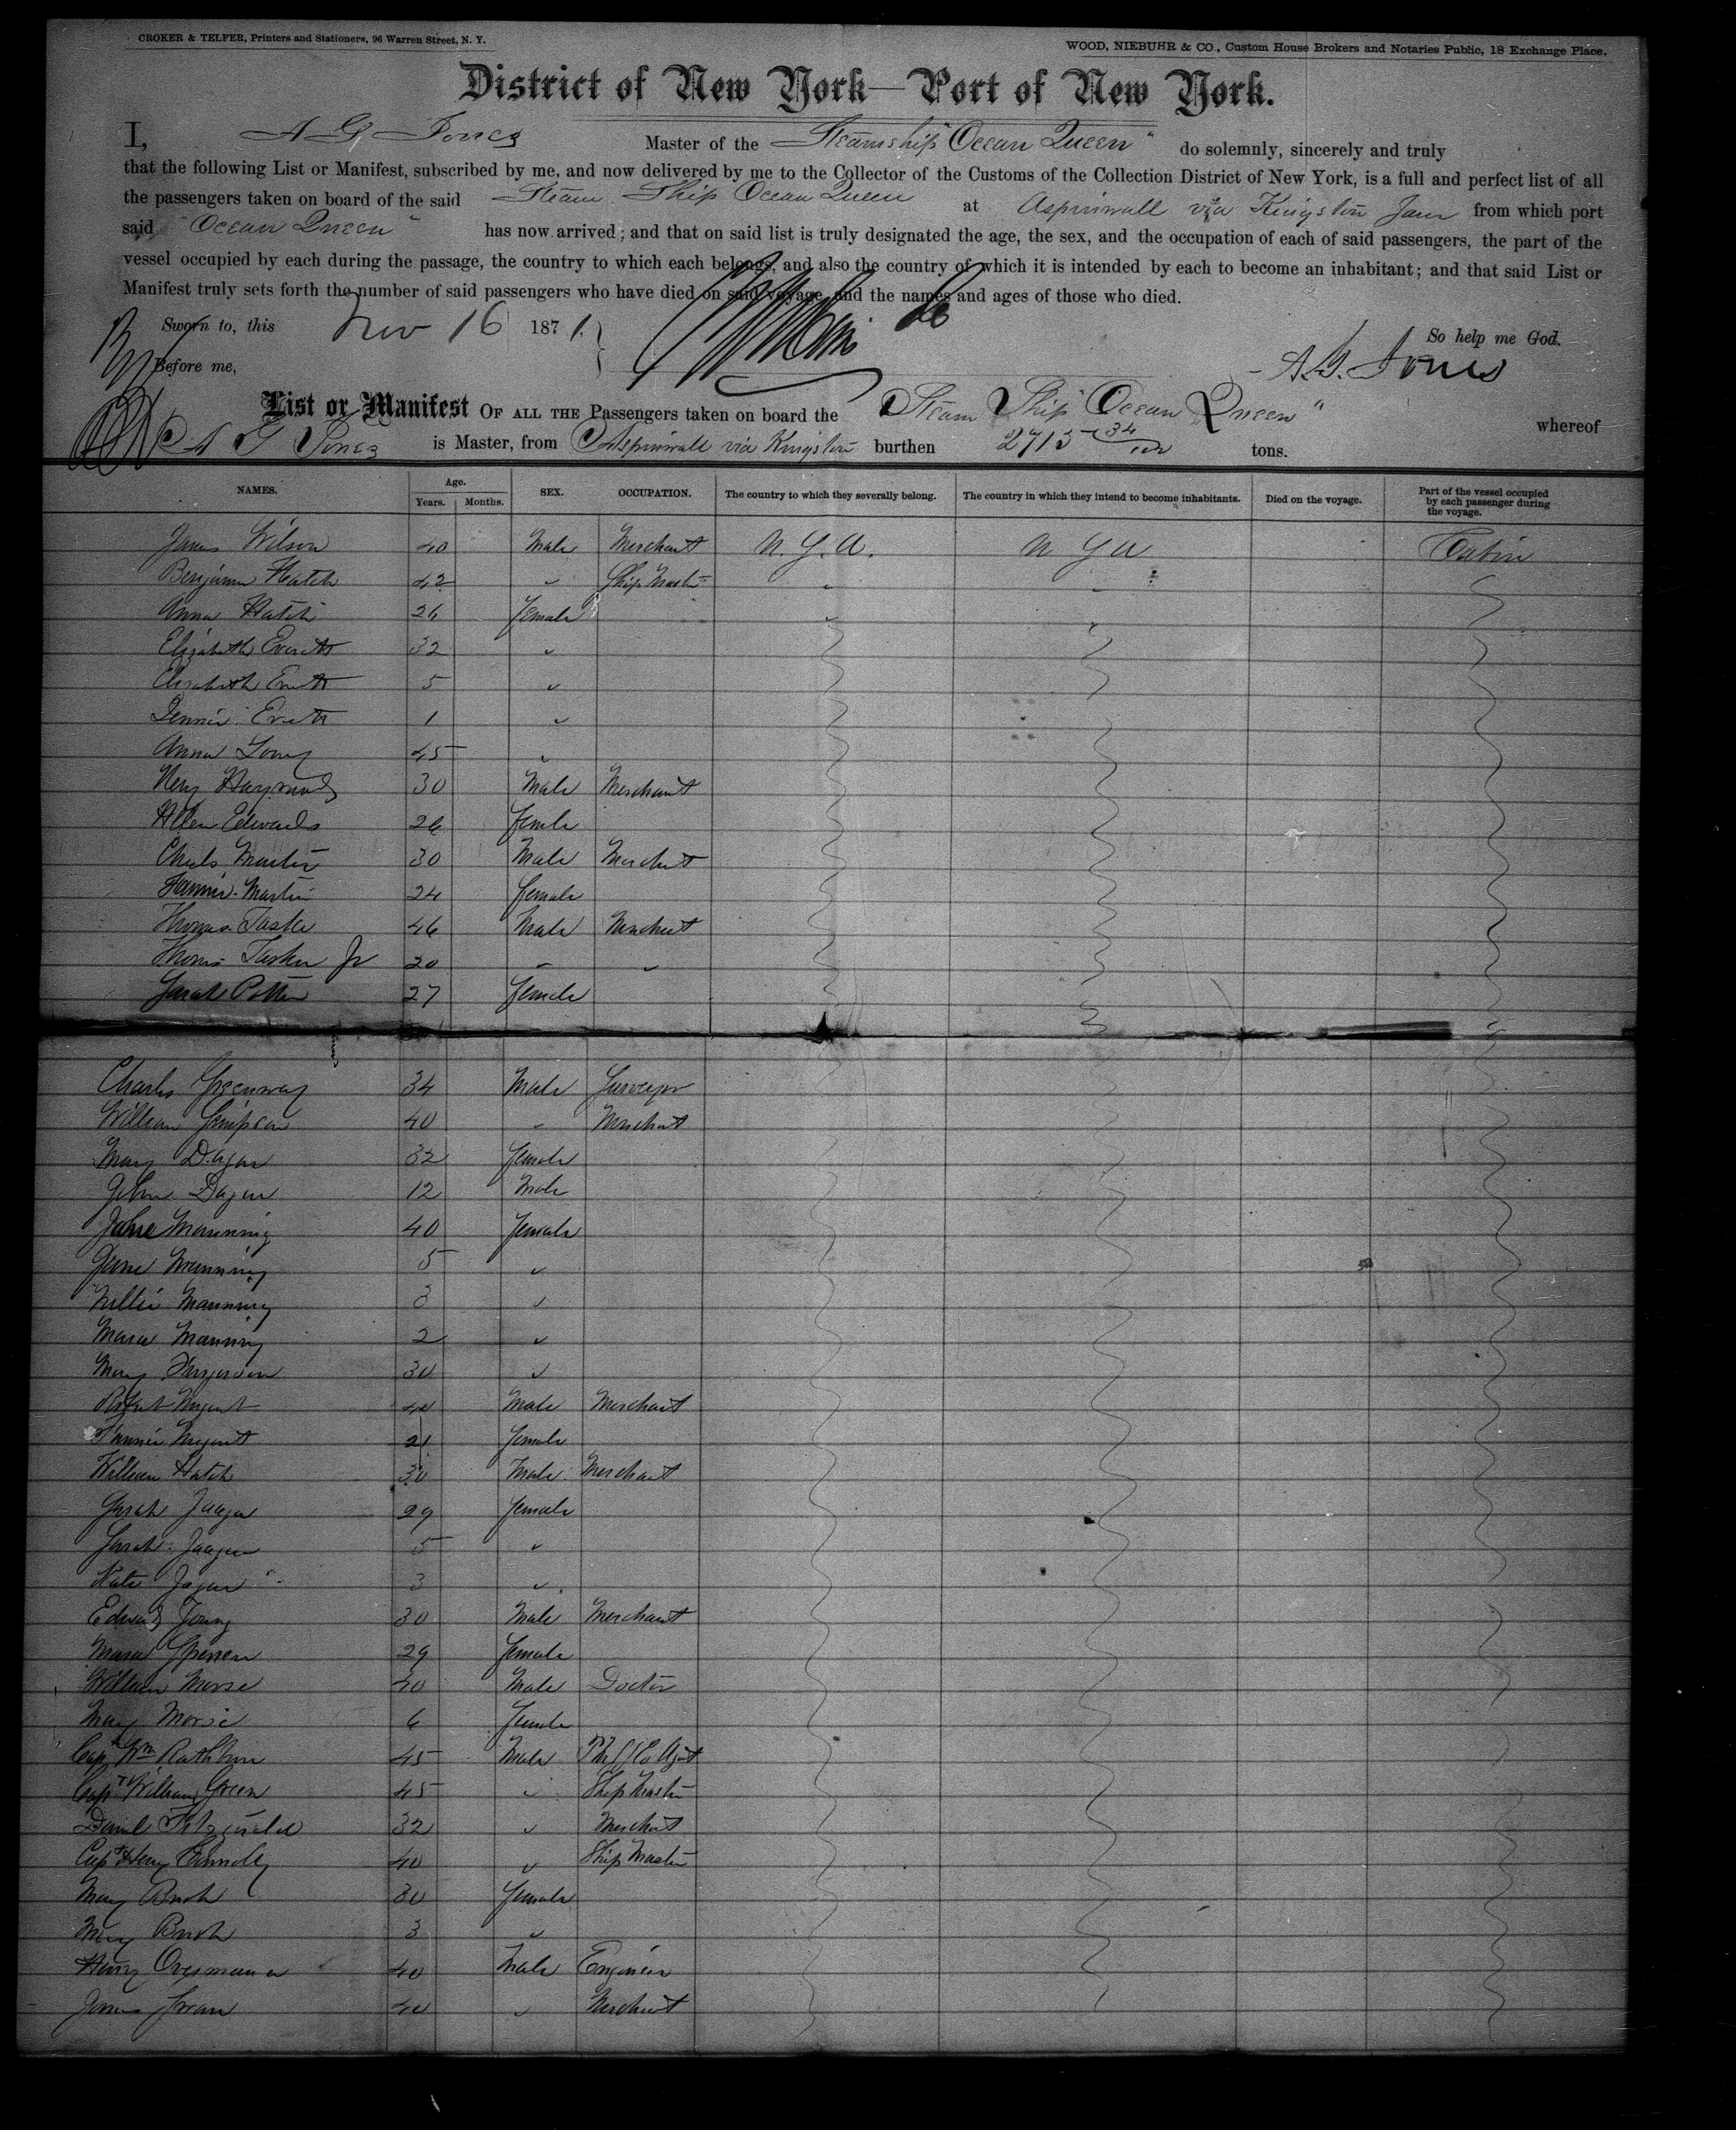 CROKER & TELFER, Printers and Stationers, 96 Warren Street, N. Y.
WOOD, NIEBUHR & CO., Custom House Brokers and Notaries Public, 18 Exchange Place.
District of New York—Port of New York.
I, A G Jones Master of the Steamship "Ocean Queen" do solemnly, sincerely and truly
that the following List or Manifest, subscribed by me, and now delivered by me to the Collector of the Customs of the Collection District of New York, is a full and perfect list of all
the passengers taken on board of the said Steam Ship Ocean Queen at Aspinwall via Kingston Jam from which port
said "Ocean Queen" has now arrived; and that on said list is truly designated the age, the sex, and the occupation of each of said passengers, the part of the
vessel occupied by each during the passage, the country to which each belongs, and also the country of which it is intended by each to become an inhabitant; and that said List or
Manifest truly sets forth the number of said passengers who have died on said voyage and the names and ages of those who died.
Sworn to, this Nov 16 1871. So help me God.
Before me, A. G. Jones
List or Manifest OF ALL THE Passengers taken on board the Steam Ship "Ocean Queen" whereof
A G Jones is Master, from Aspinwall via Kingston burthen 2715 34/100 tons.
NAMES. Age. Years. Months. SEX. OCCUPATION. The country to which they severally belong. The country in which they intend to become inhabitants. Died on the voyage. Part of the vessel occupied by each passenger during the voyage.
James Wilson 40 Male Merchant Cabin
Benjamin Hatch 42 " Ship Master " "
Anna Hatch 26 female "
Elizabeth Everett 32 "
Elizabeth Everett 5 "
Jennie Everett 1 "
Anna 45 "
30 Male Merchant
Edwards 26 female
Charles Martin 30 Male Merchant
Fannie Martin 24 female
Thomas Tasker 46 Male Merchant
Thomas Tasker Jr 20 " "
Sarah Potter 27 female
Charles Greenway 34 Male Surveyor
William Simpson 40 " Merchant
Mary 32 female
John 12 Male
Jane Manning 40 female
Jane Manning 5 "
Nellie Manning 3 "
Maria Manning 2 "
Mary Furgerson 30 "
Robert Nugent 40 Male Merchant
Fannie Nugent 21 female
William Hatch 30 Male Merchant
Sarah 29 female
Sarah 5 "
Kate 3 "
Edward 30 Male Merchant
Maria 29 female
William Morse 40 Male Doctor
Mary Morse 6 female
Capt Wm Rathbun 45 Male Agent
Capt William Green 45 " Ship Master
Daniel Fitzgerald 32 " Merchant
Capt Henry Connolly 40 " Ship Master
Mary Bush 30 female
Mary Bush 3 "
Henry 40 Male Engineer
James 40 " Merchant